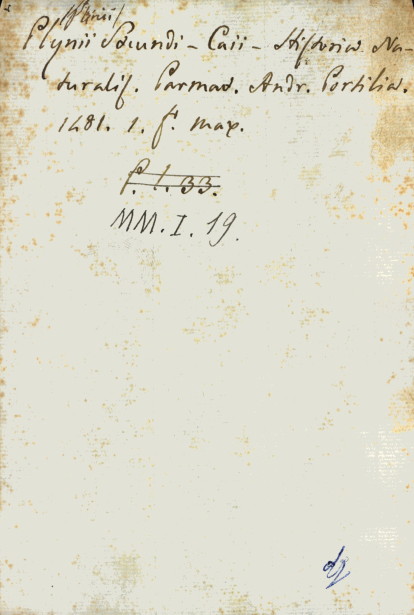 Plinii
Plynii Secundi - Caii - Historia Na-
turalis. Parmae. Andr. Portilia.
1481. 1. f. max.
f. l. 33.
MM. I. 19.